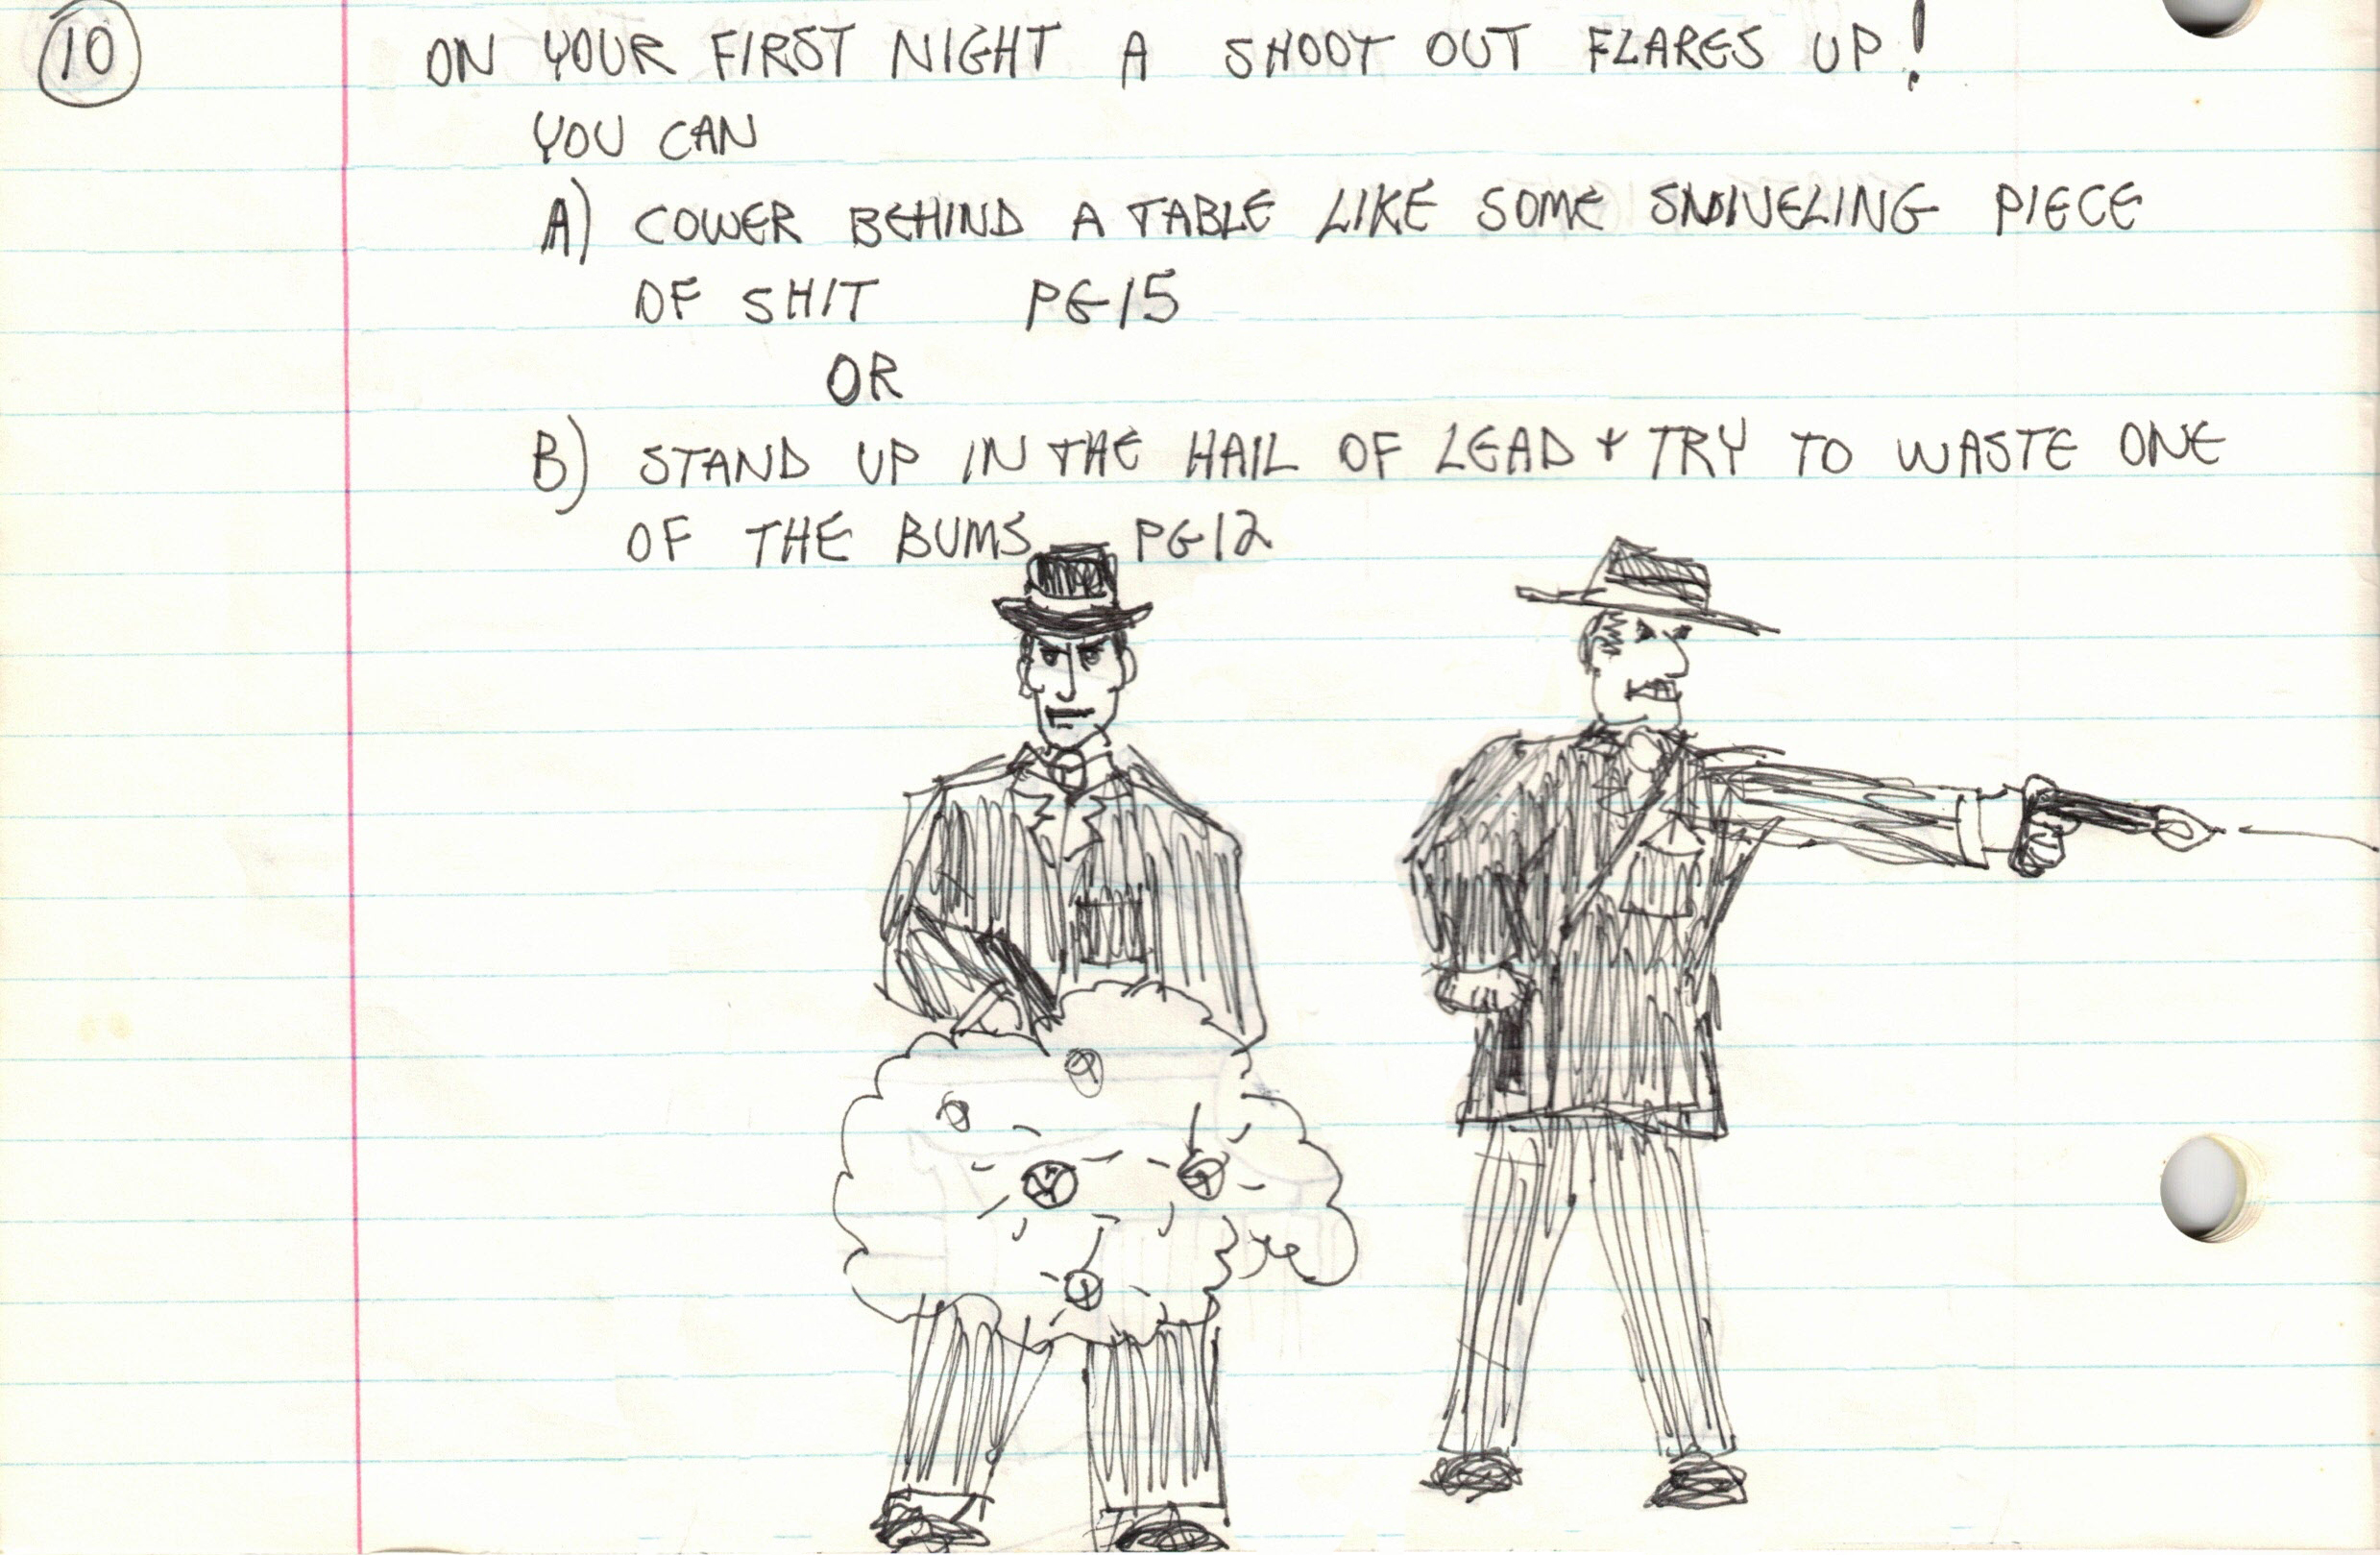 10 ON YOUR FIRST NIGHT A SHOOT OUT FLARES UP!
YOU CAN
A) COWER BEHIND A TABLE LIKE SOME SNIVELING PIECE
OF SHIT PG15
OR
B) STAND UP IN THE HAIL OF LEAD + TRY TO WASTE ONE
OF THE BUMS PG12